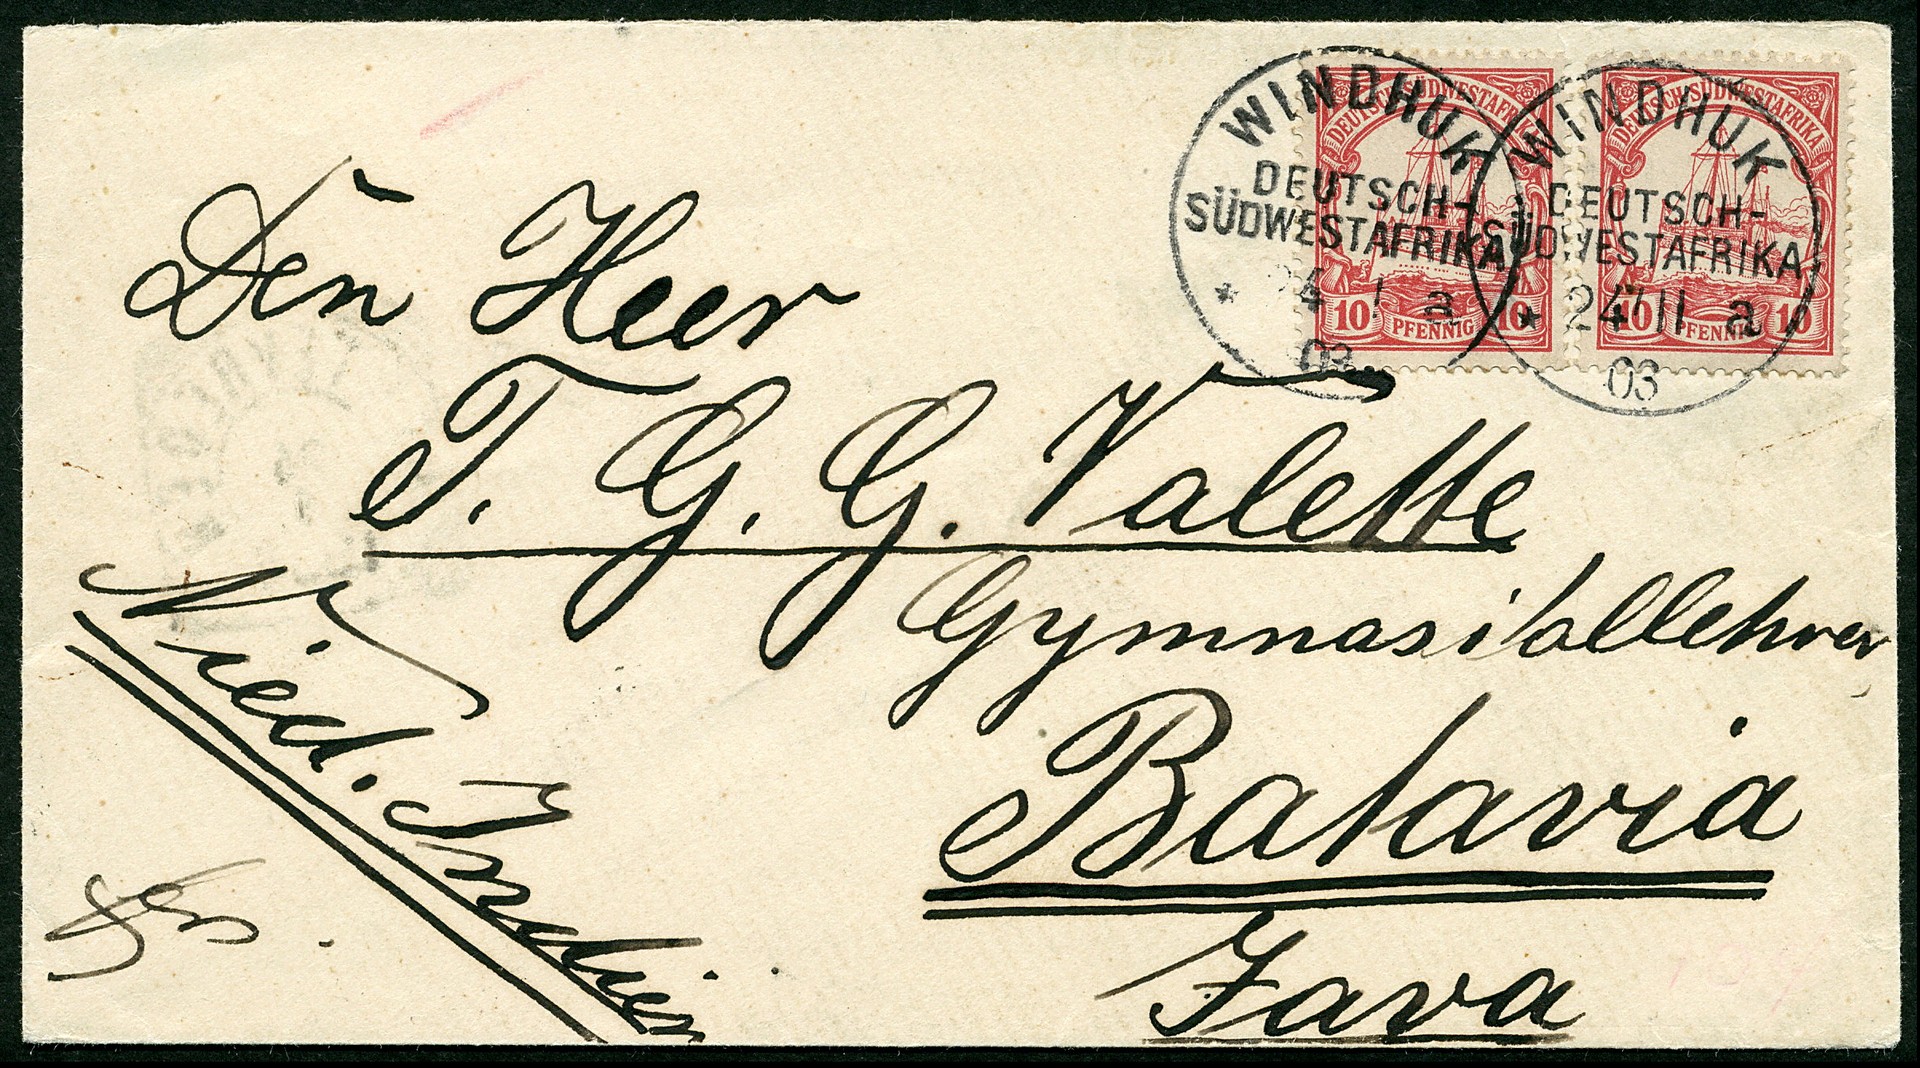 WINDHUK
DEUTSCH-
SÜDWESTAFRIKA
a
03
WINDHUK
DEUTSCH-
SÜDWESTAFRIKA
24/11 a
03
DEUTSCH-SÜDWESTAFRIKA
10 PFENNIG 10
DEUTSCH-SÜDWESTAFRIKA
10 PFENNIG 10
Den Heer
T. G. G. Valette
Gymnasiallehrer
Batavia
Java
Nied. Indien